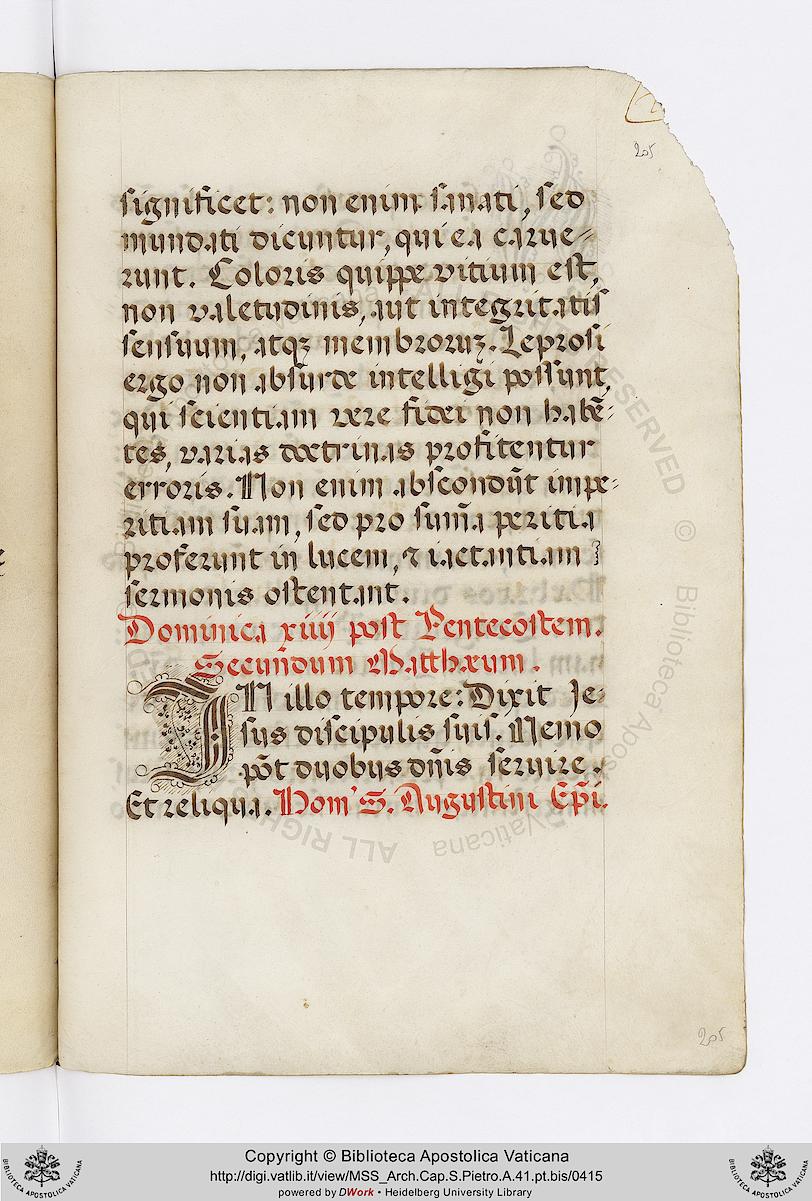 205
significet: non enim sanati, sed
mundati dicuntur, qui ea carue=
runt. Coloris quippe vitium est,
non valetudinis, aut integritatis
sensuum, atqꝫ membroruꝫ. Leprosi
ergo non absurde intelligi possunt,
qui scientiam veræ fidei non habē=
tes, varias doctrinas profitentur
erroris. Non enim abscondūt impe=
ritiam suam, sed pro sum̄a peritia
proferunt in lucem, ⁊ iactantiam
sermonis ostentant.
Dominica xiiij post Pentecostem.
Secundum Matthæum.
IN illo tempore: Dixit Je=
sus discipulis suis. Nemo
pōt duobus dn̄is seruire.
Et reliqua. Hom' S. Augustini Ep̄i.
205
Copyright © Biblioteca Apostolica Vaticana
http://digi.vatlib.it/view/MSS_Arch.Cap.S.Pietro.A.41.pt.bis/0415
powered by DWork • Heidelberg University Library